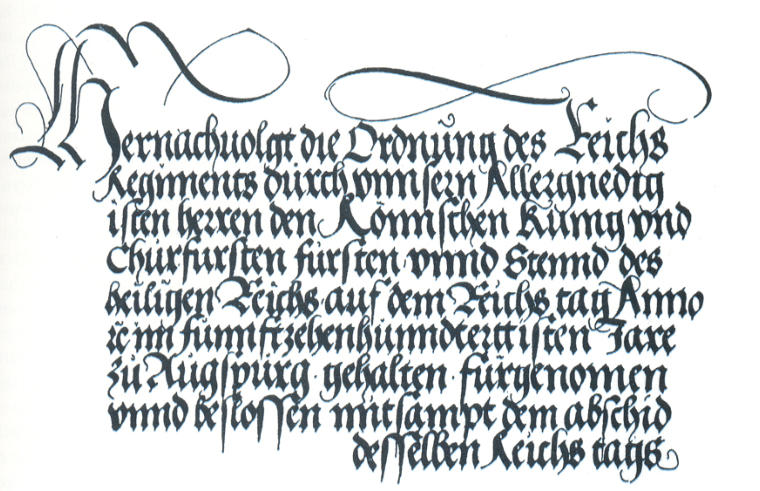 Hernachuolgt die Ordnung des Reichs
Regiments durch vnnsern Allergnedig
isten herren den Römischen Kunig vnd
Churfursten fursten vnnd Stennd des
heiligen Reichs auf dem Reichs tag Anno
ꝛc im funnftzehenhunndertisten Jare
zu Augspurg · gehalten · furgenomen
vnnd beslossen mitsampt dem abschid
desselben Reichs tags